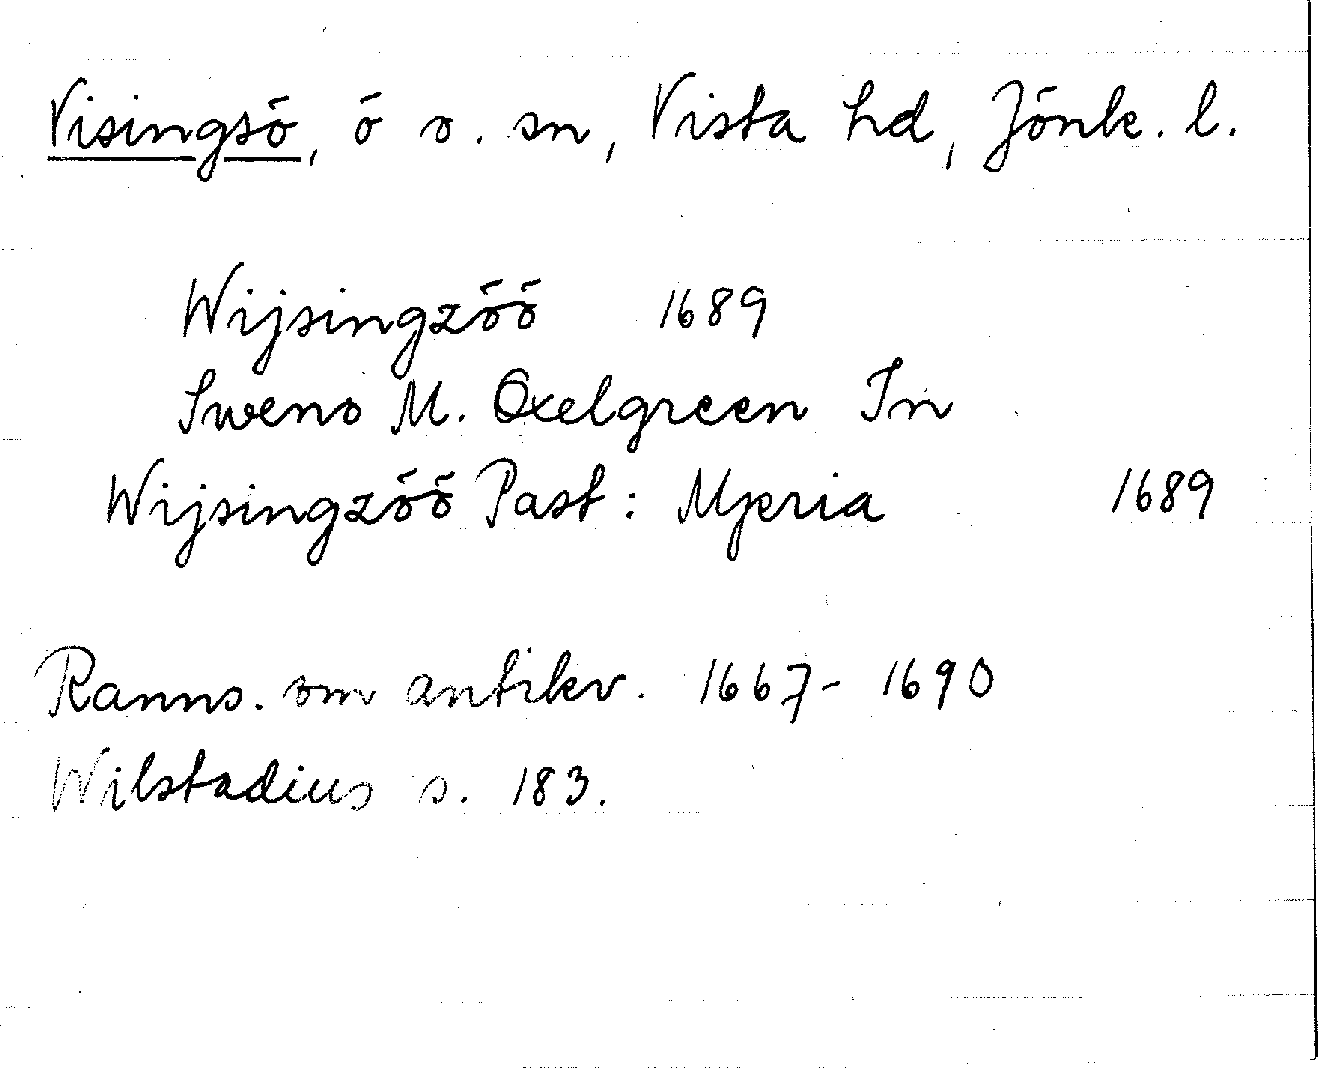 Visingsö, ö o. sn, Vista hd, Jönk. l.
Wijsingzöö 1689
Sweno M. Oxelgreen In
Wijsingzöö Past: Mperia 1689
Ranns. om antikv. 1667-1690
Wilstadius s. 183.